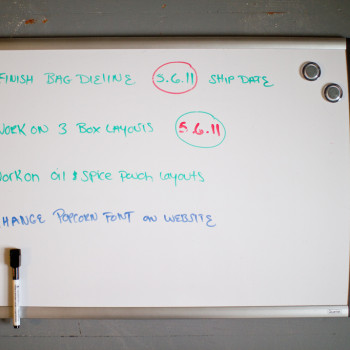 FINISH BAG DIELINE 5.6.11 SHIP DATE
WORK ON 3 BOX LAYOUTS 5.6.11
WORK ON OIL & SPICE POUCH LAYOUTS
CHANGE POPCORN FONT ON WEBSITE